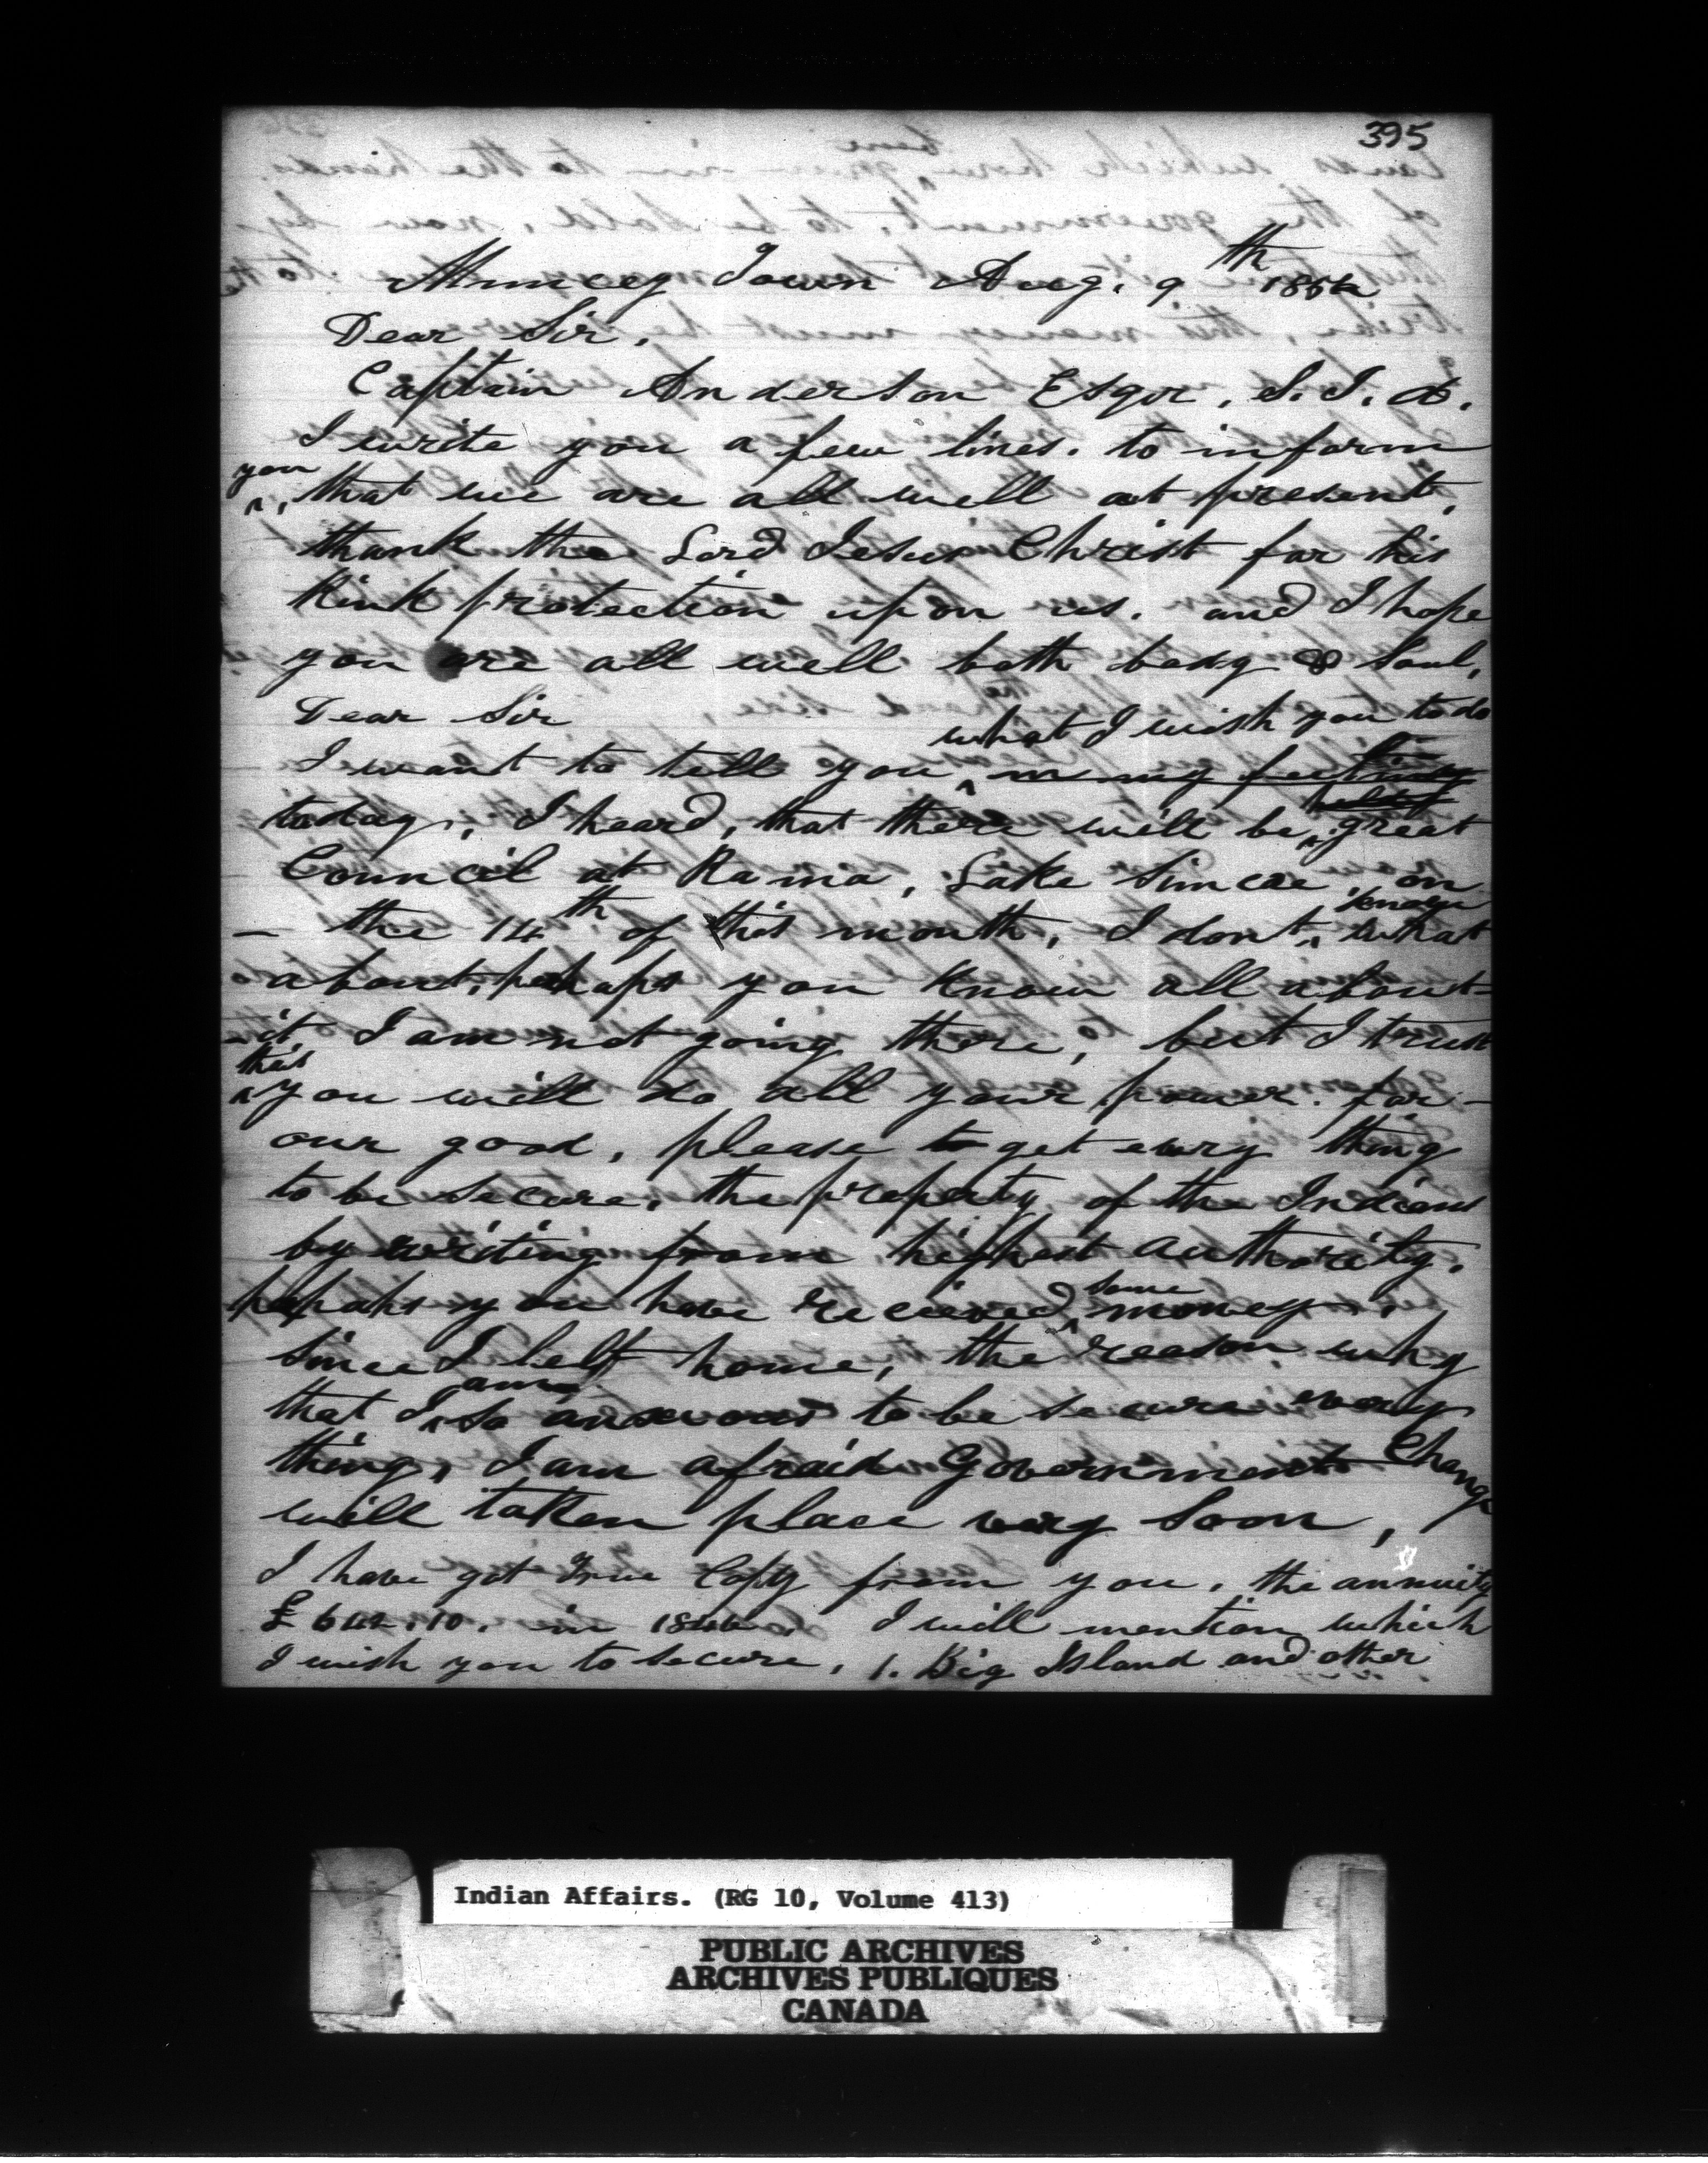 395
Muncey Town Aug. 9th
Dear Sir,
Captain Anderson Esqr, S. I. A.
I write you a few lines. to inform
you
that we are all well at present,
thank the Lord Jesus Christ for his
kink protection upon us. and I hope
you are all well both body & Soul,
Dear Sir
what I wish you to do
I want to tell you in my feelings
today, I heard, that there will be great
Council at Rama, Lake Simcoe, on
know
the 14th of this month, I dont, what
about, perhaps you know all about
it I am not going there, but I trust
that
you will do all your power. for
our good, please to get every thing
to be secure, the property of the Indians
by writing from highest authority.
some
perhaps you have recieved money,
since I left home, the reason why
am
that I so anxious to be secure every
thing, I am afraid Government Change
will taken place very soon,
I have got True Copy from you, the annuity
£642.10. in 1846. I will mention which
I wish you to secure, 1. Big Island and other
Indian Affairs. (RG 10, Volume 413)
PUBLIC ARCHIVES
ARCHIVES PUBLIQUES
CANADA